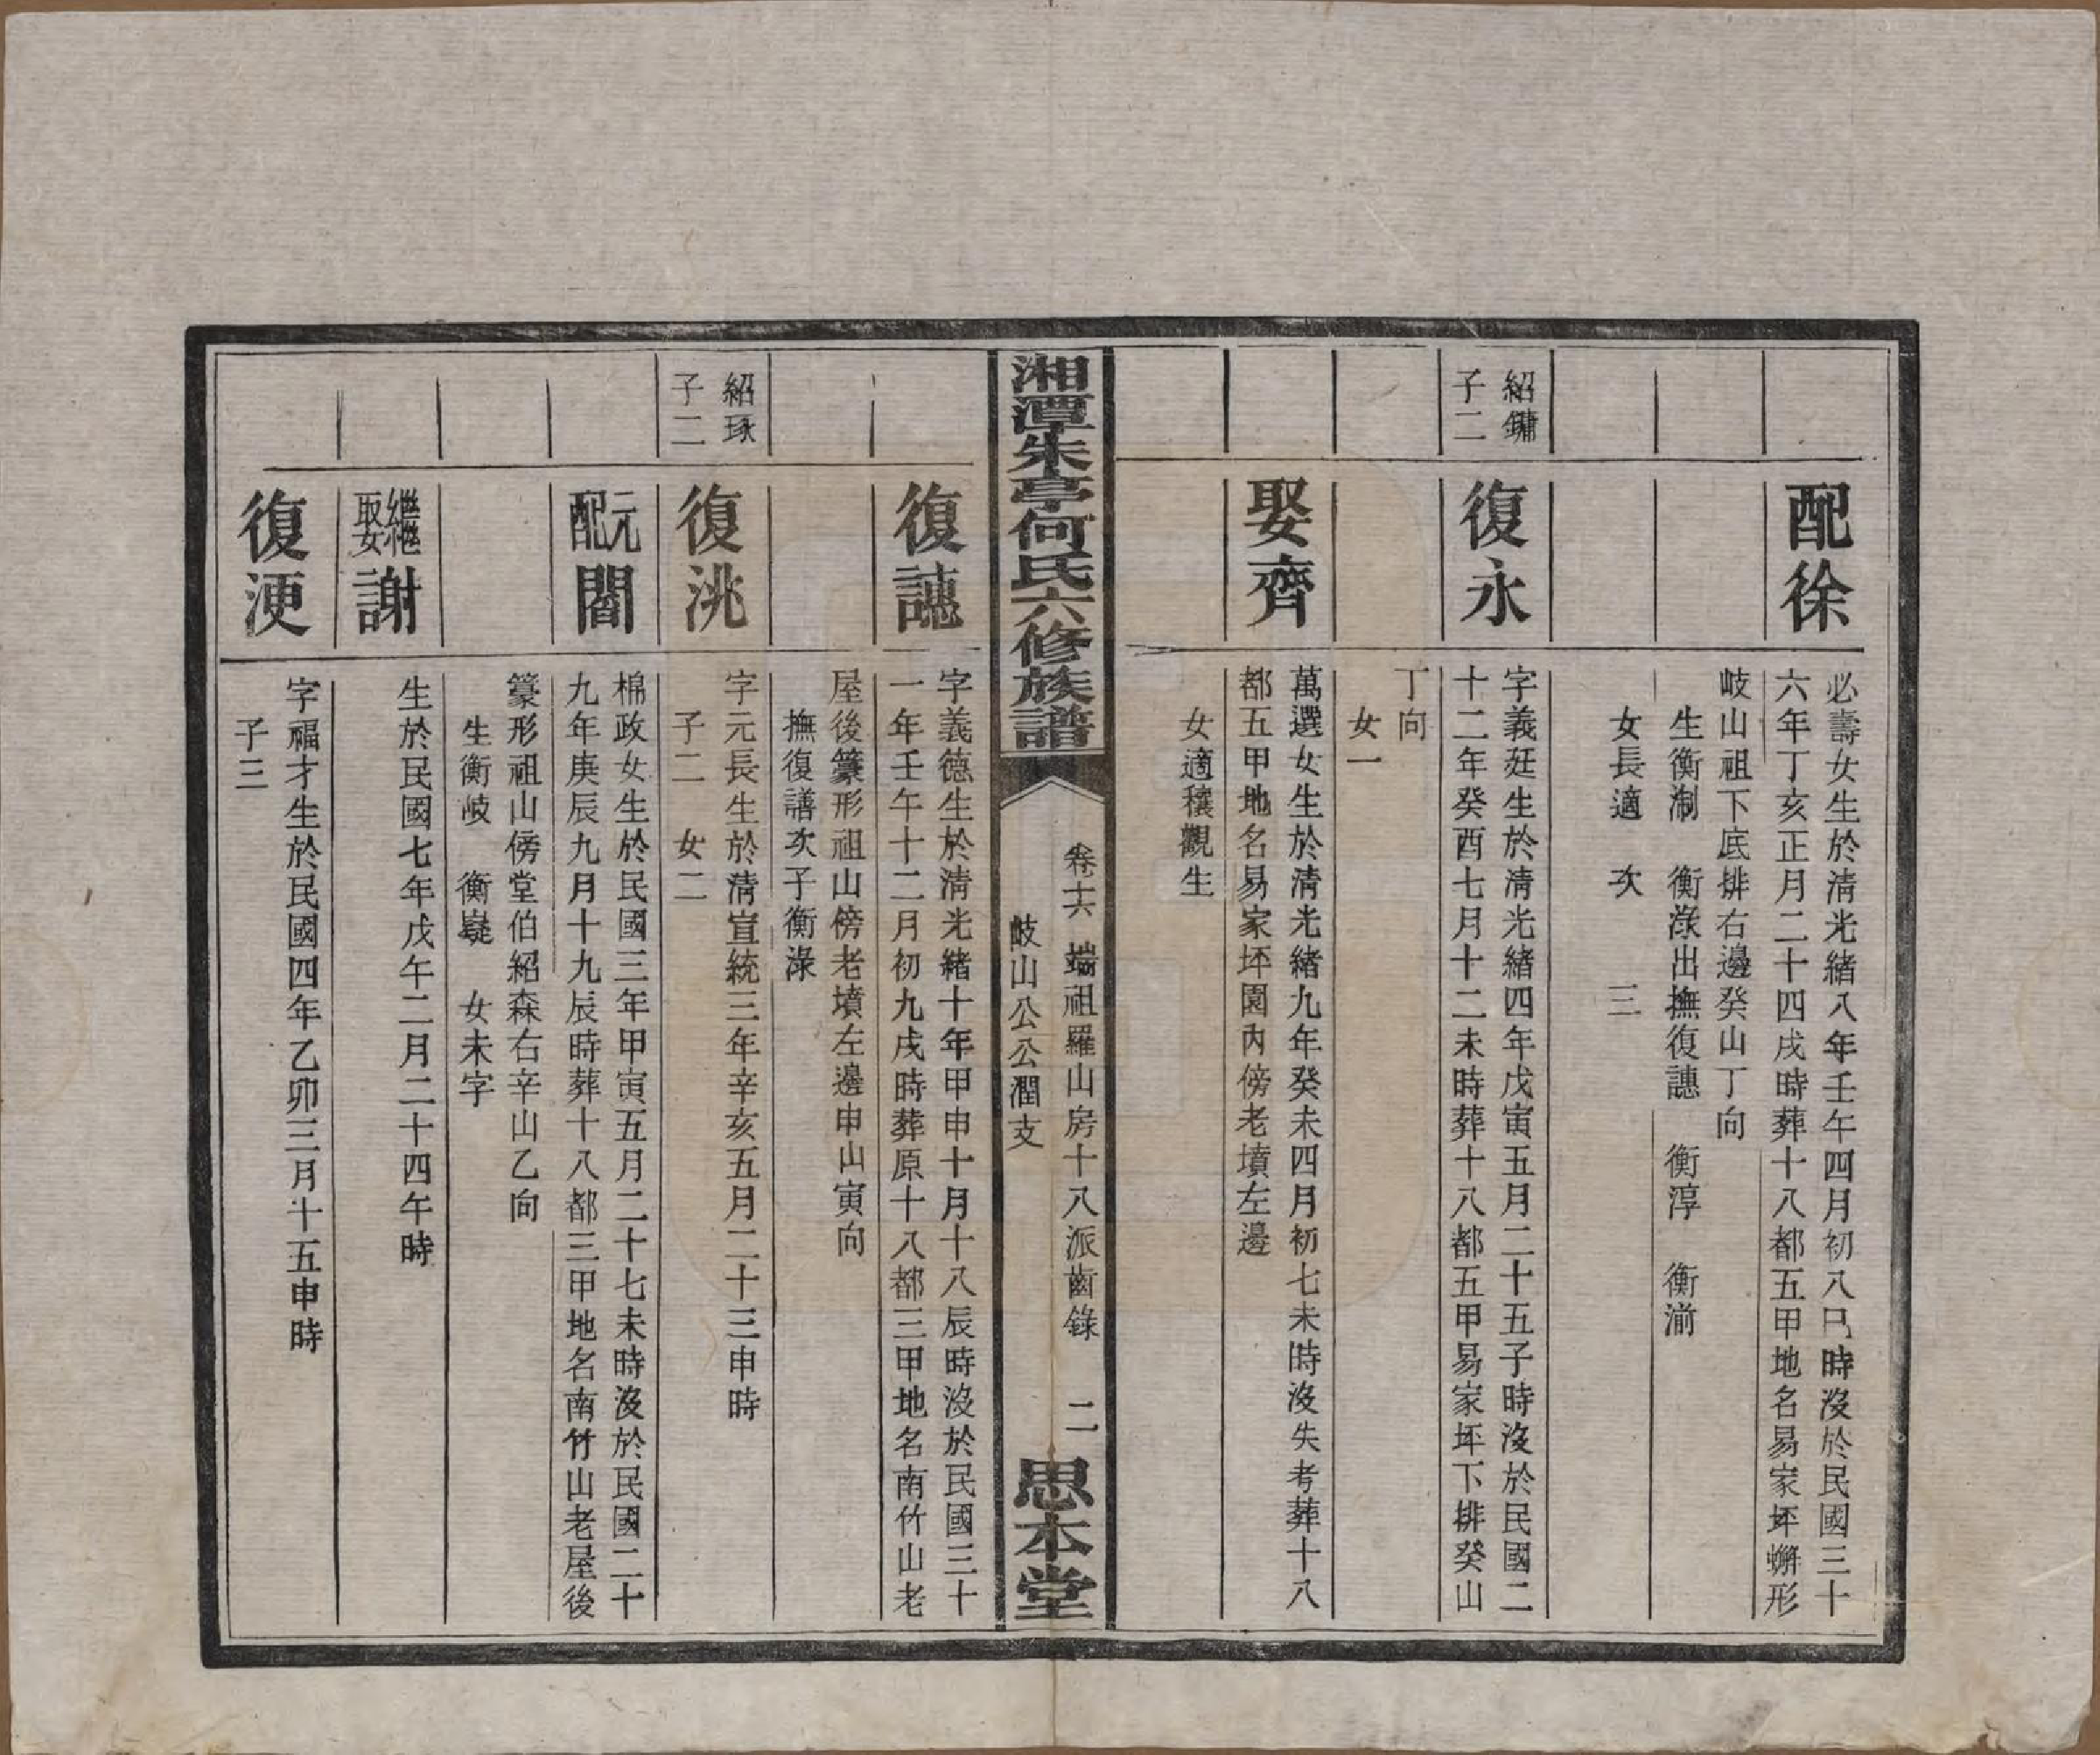 配徐
必壽女生於清光緒八年壬午四月初八巳時沒於民國三十
六年丁亥正月二十四戌時葬十八都五甲地名易家坪蠏形
岐山祖下底排右邊癸山丁向
生衡淛 衡淥出撫復譓 衡淳 衡湔
女長適 次 三
紹鏞
子二
復永
字義廷生於清光緒四年戊寅五月二十五子時沒於民國二
十二年癸酉七月十二未時葬十八都五甲易家坪下排癸山
丁向
女一
娶齊
萬選女生於清光緒九年癸未四月初七未時沒失考葬十八
都五甲地名易家坪園內傍老墳左邊
女適穰觀生
湘潭朱亭何氏六修族譜
卷十六 端祖羅山房十八派齒錄 二
岐山公公潤支
思本堂
復譓
字義德生於清光緒十年甲申十月十八辰時沒於民國三十
一年壬午十二月初九戌時葬原十八都三甲地名南竹山老
屋後籇形祖山傍老墳左邊申山寅向
撫復譜次子衡淥
紹琢
子二
復洮
字元長生於清宣統三年辛亥五月二十三申時
子二 女二
元配閻
棉政女生於民國三年甲寅五月二十七未時沒於民國二十
九年庚辰九月十九辰時葬十八都三甲地名南竹山老屋後
籇形祖山傍堂伯紹森右辛山乙向
生衡岐 衡嶷 女未字
繼娶謝
生於民國七年戊午二月二十四午時
復浭
字福才生於民國四年乙卯三月十五申時
子三